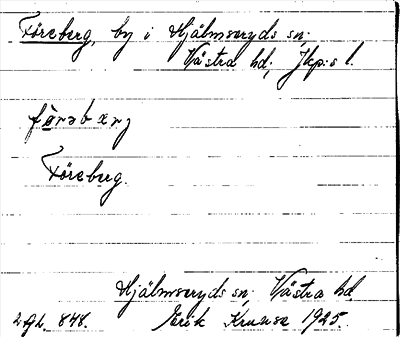 Föreberg, by i Hjälmseryds sn;
Västra hd; Jkp:s l.
förəbærj
Föreberg.
Hjälmseryds sn; Västra hd.
2 gh. 848. Erik Kruuse 1925.